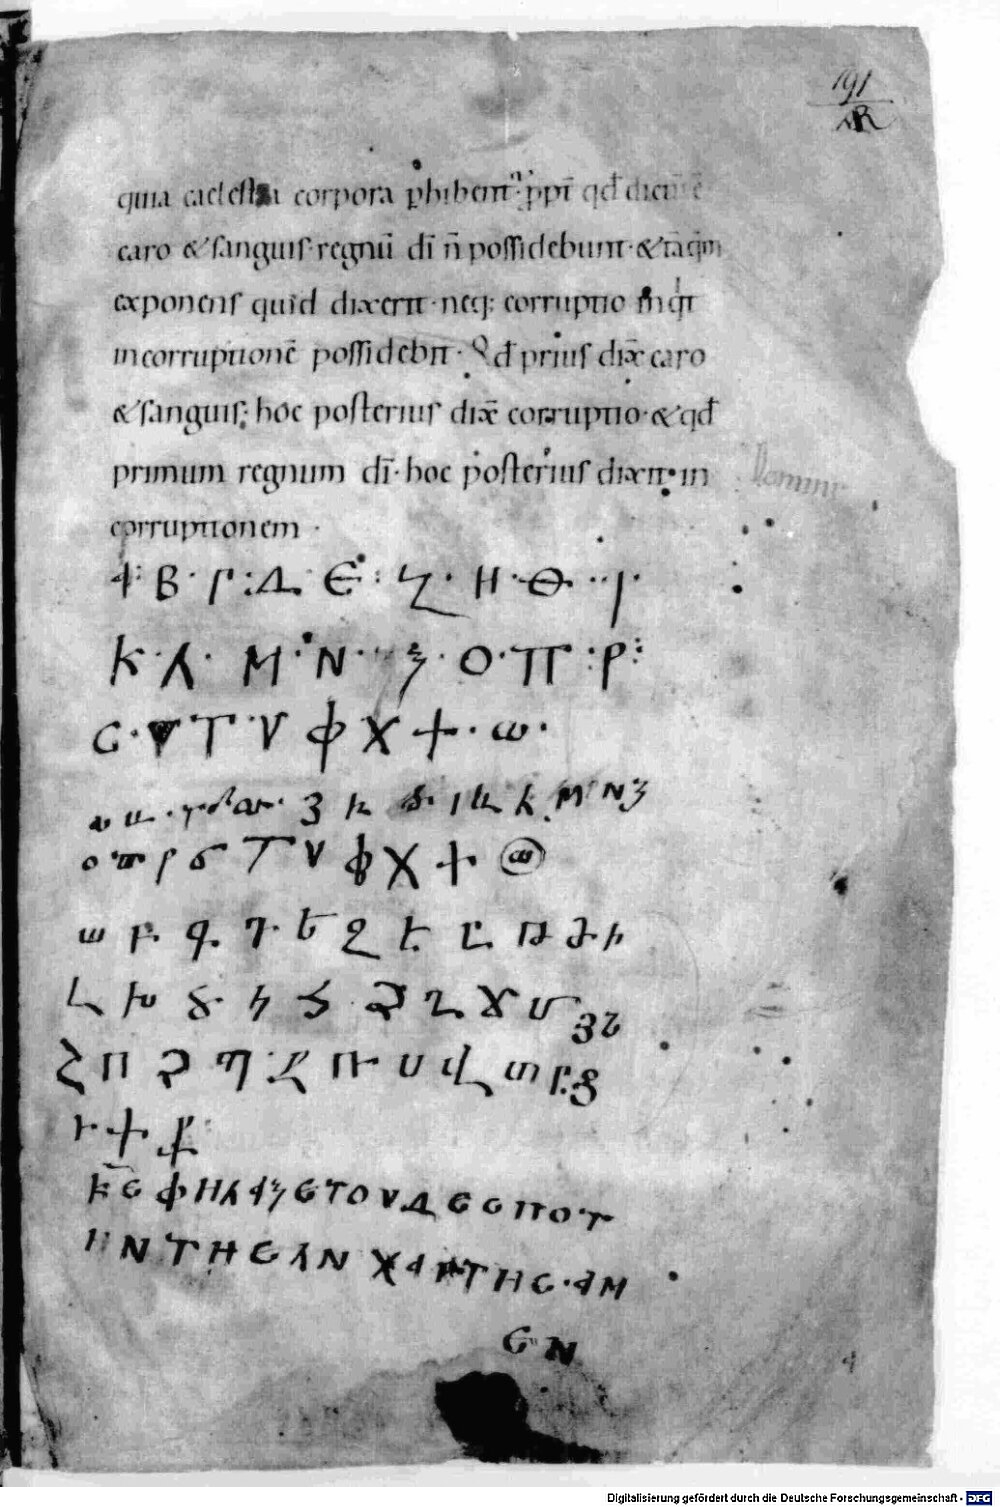 191
quia caelestia corpora phibent ppt qd dictū ē
caro & sanguis regnū dī n̄ possidebunt · & tāqm
exponens quid dixerit · neq; corruptio
incorruptionē possidebit · Qd prius dix̄ caro
& sanguis; hoc posterius dix̄ corruptio · & qd
primum regnum dī · hoc posterius dixit · in
corruptionem ·
Α : Β · Γ : Δ · Є : Ζ · Η · Θ ·· Ι ·
Κ · Λ · Μ · Ν · Ξ · Ο · Π : Ρ :
Ϲ · Τ · V Φ Χ + · ω ·
Μ Ν Ξ
ο Τ V Φ Χ + ω
ա բ գ դ ե զ է ը թ ժ ի
լ խ ծ կ հ ձ ղ ճ մ յ ն
շ ո չ պ ջ ռ ս վ տ ր ց
ւ փ ք
Κ Є Φ Η Λ Α Ξ Є Τ Ο V Δ Є Ϲ Π Ο Τ
Ι Ν Τ Η Ϲ Α Ν Χ Α Ρ Τ Η Ϲ · Α Μ
Є Ν
Digitalisierung gefördert durch die Deutsche Forschungsgemeinschaft - DFG